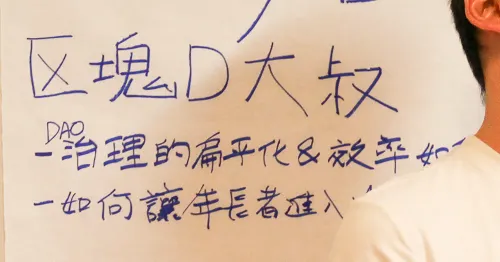 区塊D大叔
DAO
-治理的扁平化&效率如
-如何讓年長者進入